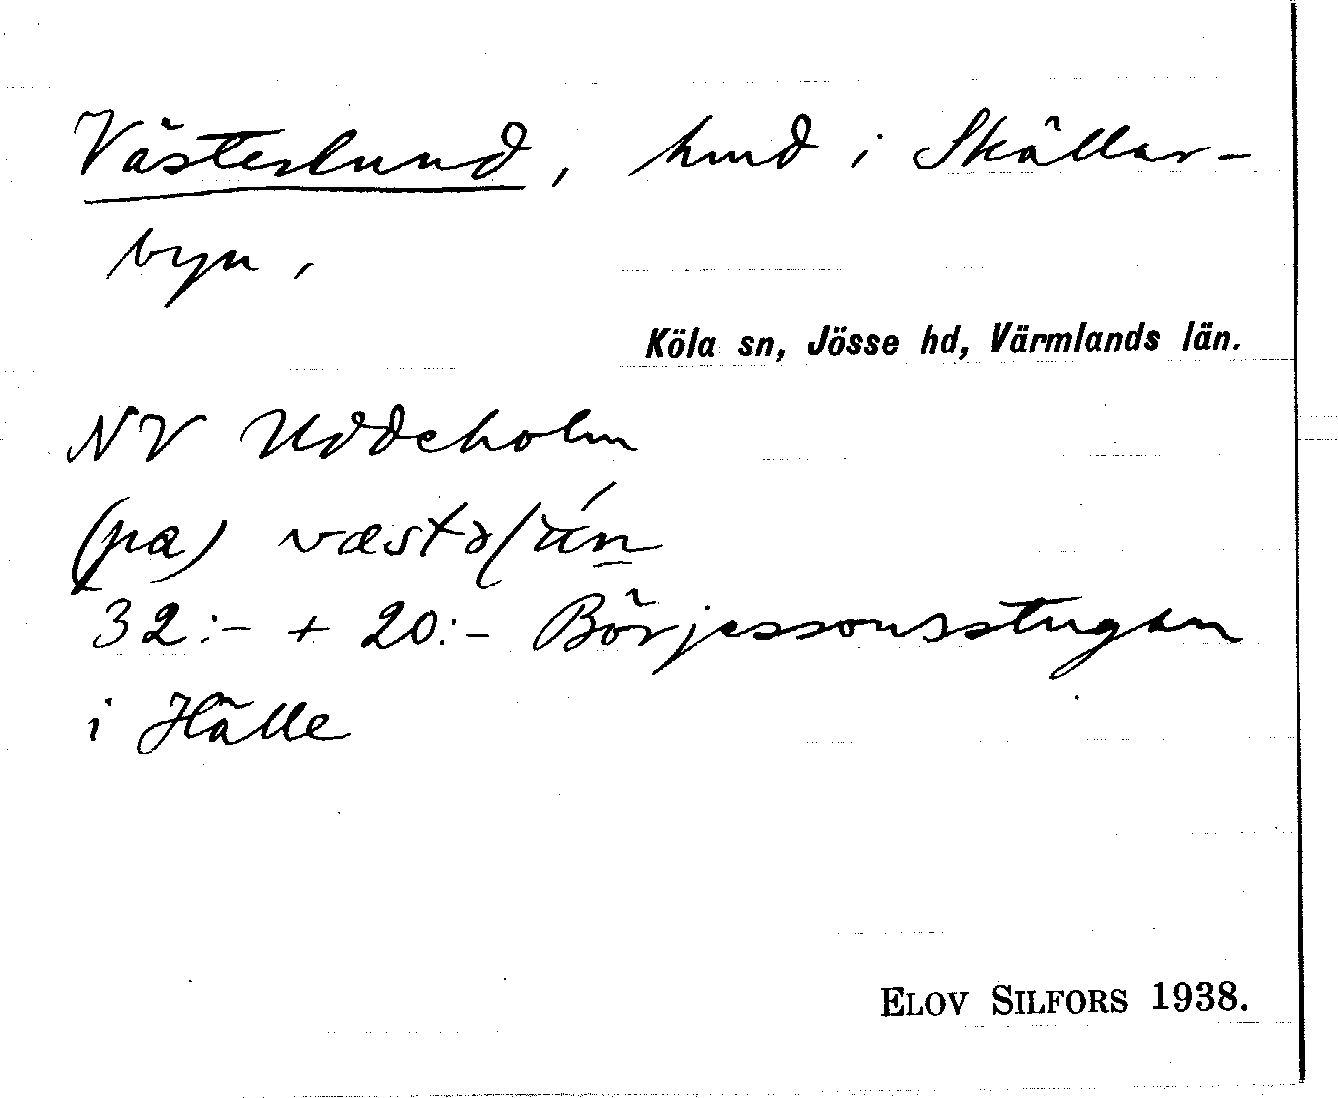 Västerlund, hmd i Skällar-
byn.
Köla sn, Jösse hd, Värmlands län.
NV Uddeholm
(pa)
32:- + 20:- Börjessonsstugan
i Hälle
ELOV SILFORS 1938.